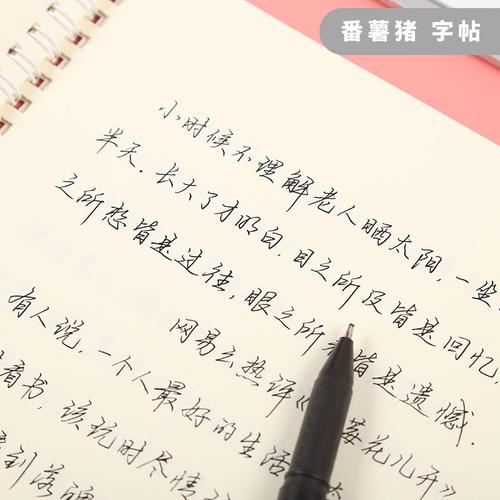 番薯猪 字帖
小时候不理解老人晒太阳，一坐
半天．长大了才明白，目之所及皆是回忆
之所想皆是过往，眼之所 皆是遗憾．
网易云热评《 花几开》
有人说，一个人最好的生活
看书，该玩时尽情
到落